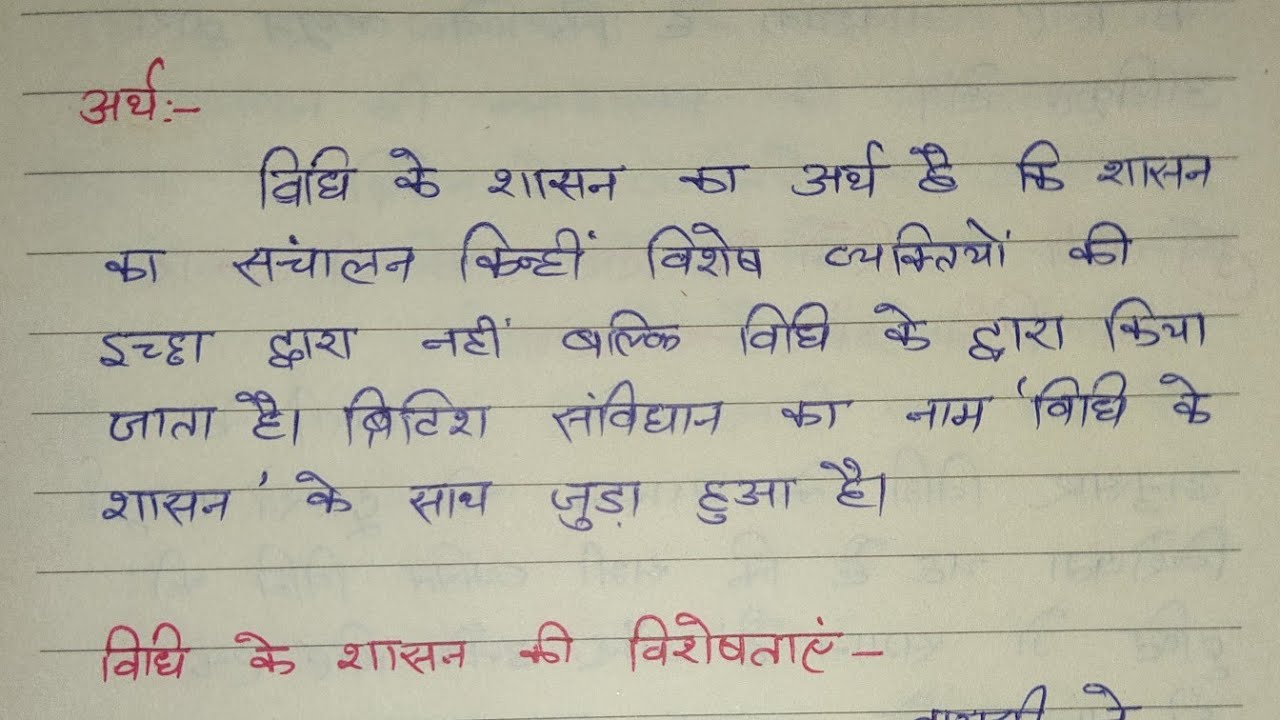 अर्थ:-
विधि के शासन का अर्थ है कि शासन
का संचालन किन्हीं विशेष व्यक्तियों की
इच्छा द्वारा नहीं बल्कि विधि के द्वारा किया
जाता है। ब्रिटिश संविधान का नाम 'विधि के
शासन' के साथ जुड़ा हुआ है।
विधि के शासन की विशेषताएं -